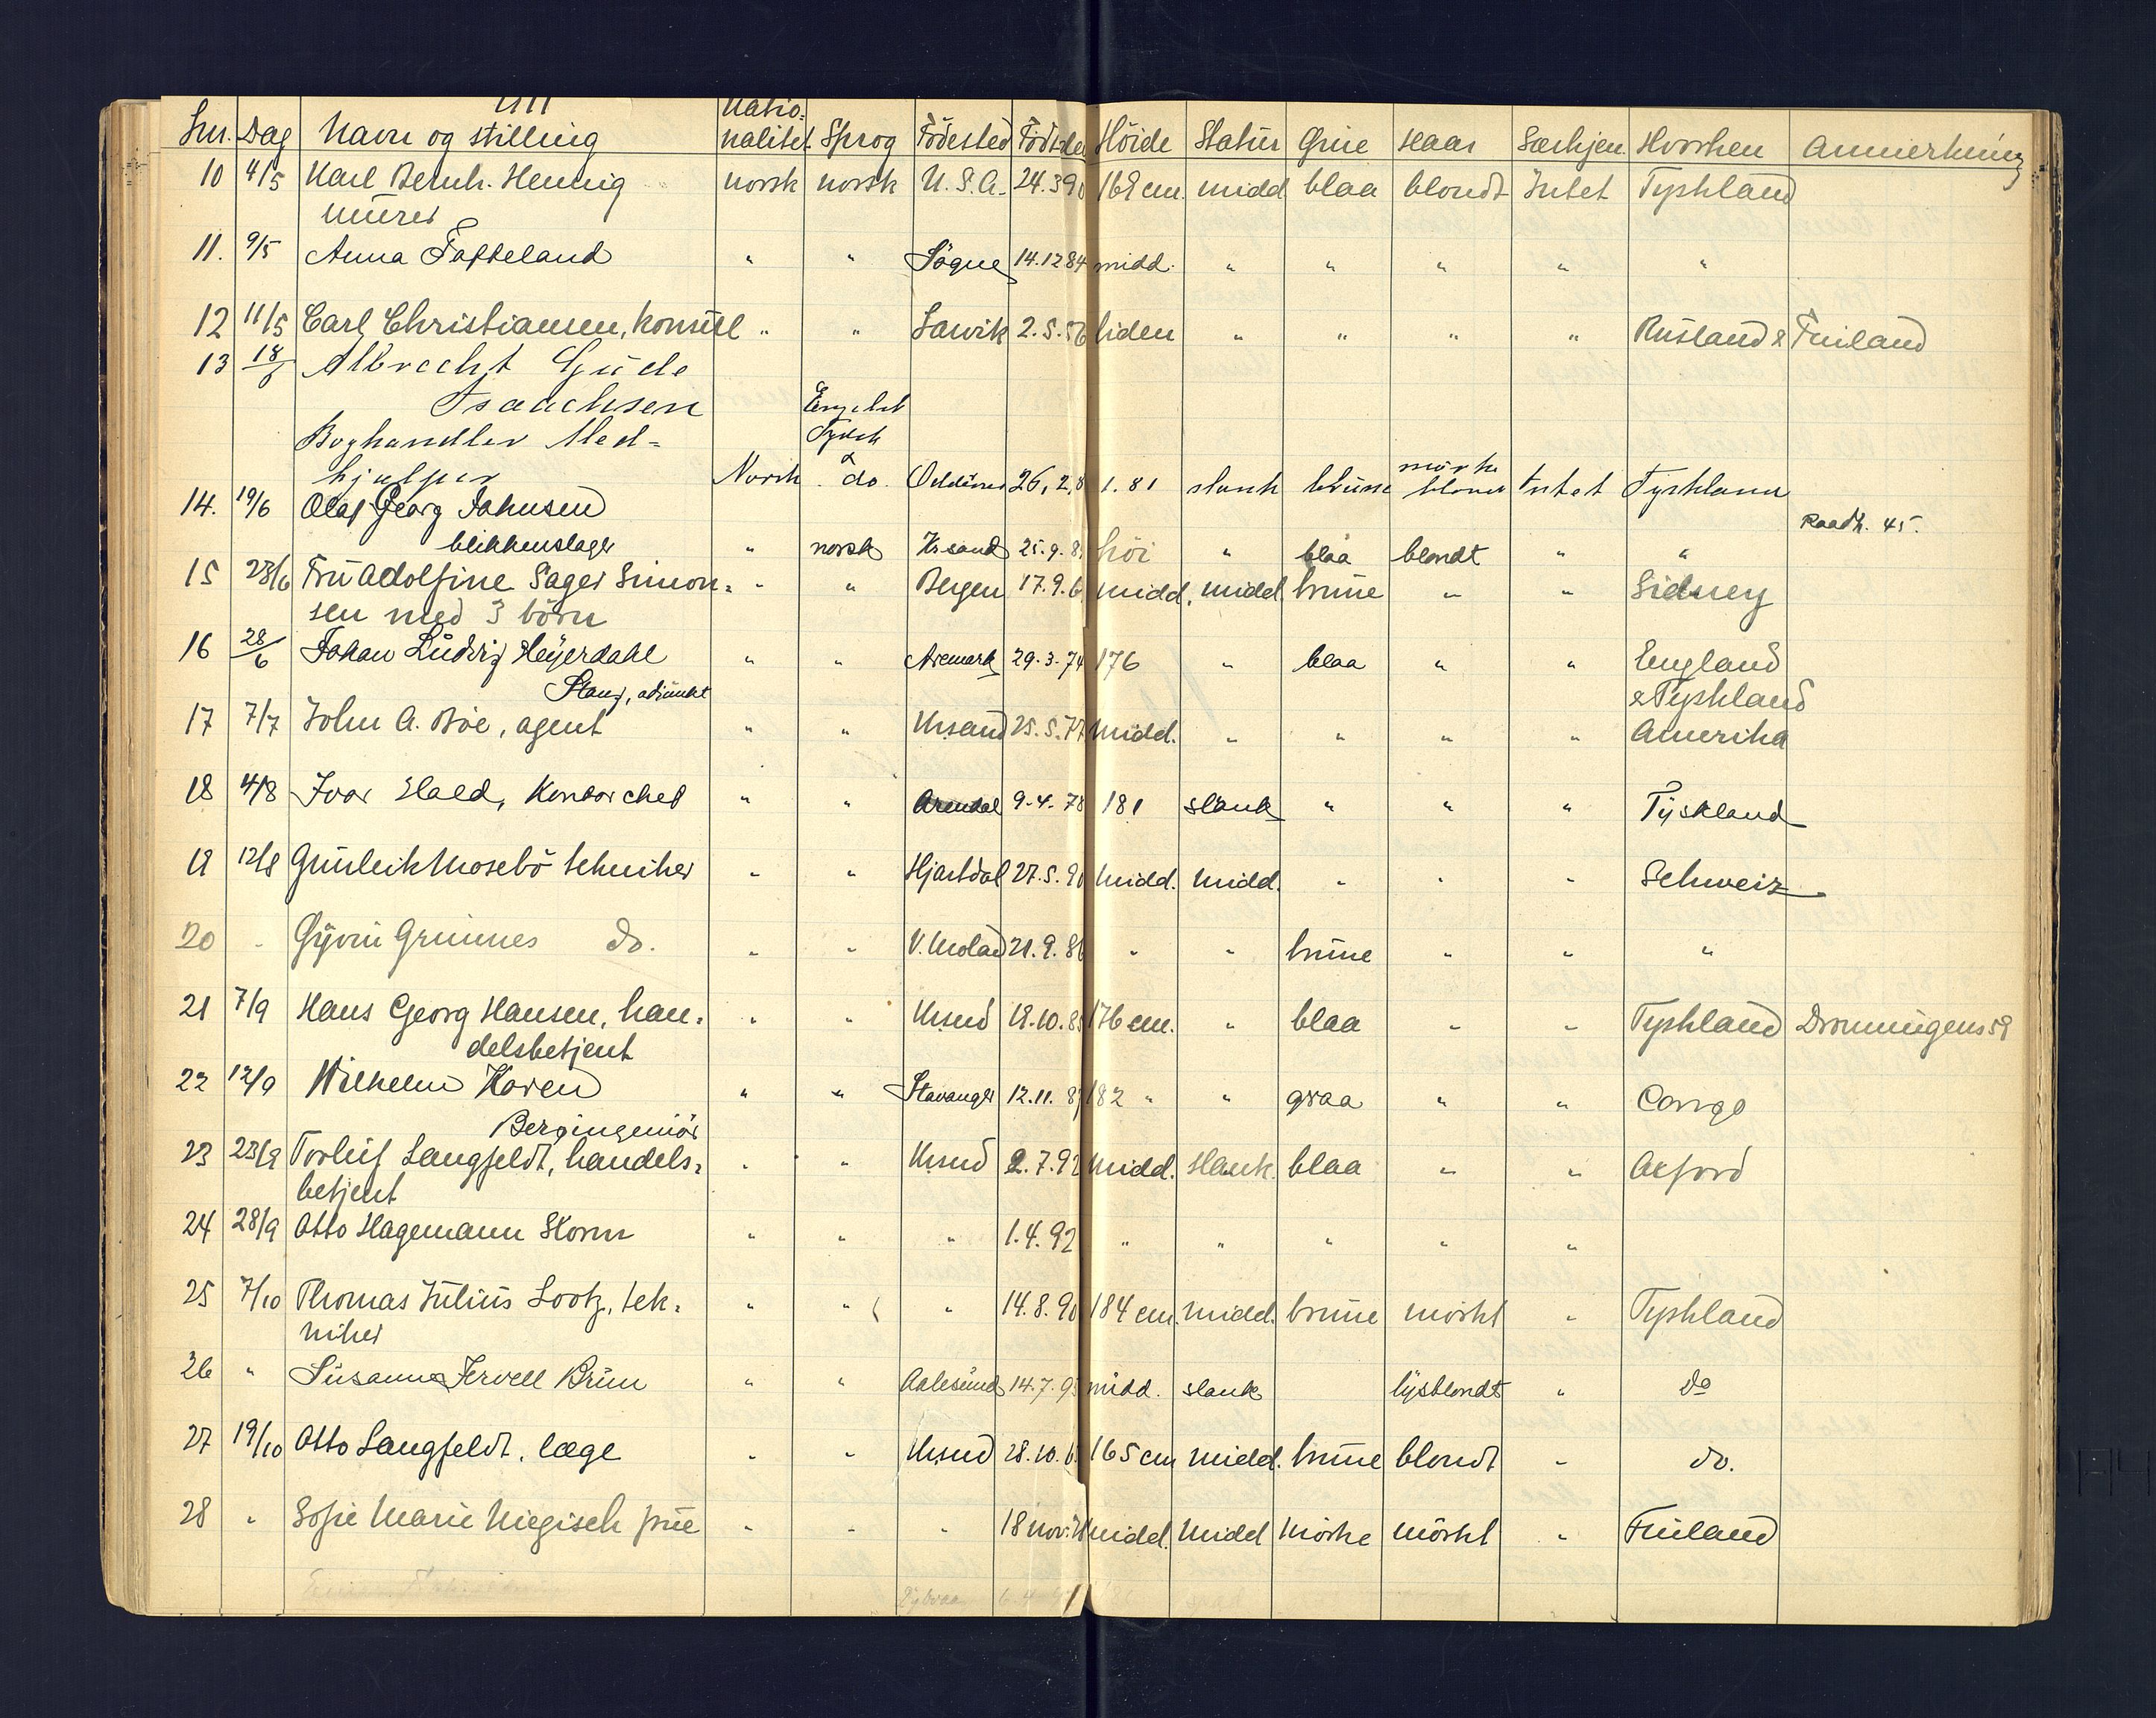 1911
Lnr. Dag Navn og stilling Natio- nalitet Sprog Födested Födt Höide Statur Öine Haar Særkjen. Hvorhen Anmerkning
10 4/5 Karl Bernh. Hennig norsk norsk U.S.A. 24.3.90 168 cm. midd blaa blondt Intet Tyskland
murer
11. 9/5 Anna Fasseland " " Sögne 14.12.84 midd. " " " " "
12 11/5 Carl Christiansen, konsul " " Larvik 2.5.56 liden " " " " Rusland & Finland
13 18/5 Albrecht Gude
Isaachsen Engelsk
Boghandler Med- Tydsk
hjælper Norsk & do. 26,2,8 1.81 slank brune mörke blondt Intet Tyskland
14. 19/6 Olaf Georg Johnsen Raadh. 45.
blikkenslager " norsk Krsand 25.9.8 höi " blaa blondt " "
15 23/6 Fru Adolfine Sager Simon- " " Bergen 17.9.6 midd. midd. brune " " Sidney
sen med 3 börn
16 28/6 Johan Ludvig Heyerdahl " " Aremark 29.3.74 176 " blaa " " England
Stang, adjunkt & Tyskland
17 7/7 John A. Böe, agent " " Krsand 25.5.77 Midd. " " " " Amerika
18 4/8 Ivar Hald, Kontorchef " " Arendal 9.4.78 181 slank " " " Tyskland
19 12/8 Gunleik Mosebö tekniker " " Hjartdal 27.5.90 Midd. Midd. " " " Schweiz
20 " Gijvin Grimnes do. " " V. Moland 21.9.86 " " brune " " "
21 7/9 Hans Georg Hansen, han- " " Krsnd 18.10.85 176 cm. " blaa " " Tyskland Dronningens 59
delsbetjent
22 12/9 Wilhelm Koren " " Stavanger 12.11.87 182 " " graa " " Congo
Bergingeniör
23 23/9 Torleif Langfeldt, handels- " " Krsnd 2.7.92 Midd. Slank. blaa " " Oxford
betjent
24 28/9 Otto Hagemann Storm " " " 1.4.92 " " " " "
25 7/10 Thomas Julius Lootz, tek- " " " 14.8.90 184 cm. midd. brune mörkt " Tyskland
niker
26 " Susanne Jervell Brun " " Aalesund 14.7.93 midd. slank lysblondt " do
27 19/10 Otto Langfeldt, læge " " Krsnd 28.10.6 165 cm midd. brune blondt " do.
28 " Sofie Marie Niegisch frue " " " 18 nov. 78 midd. Midd Mörke mörkt " Finland